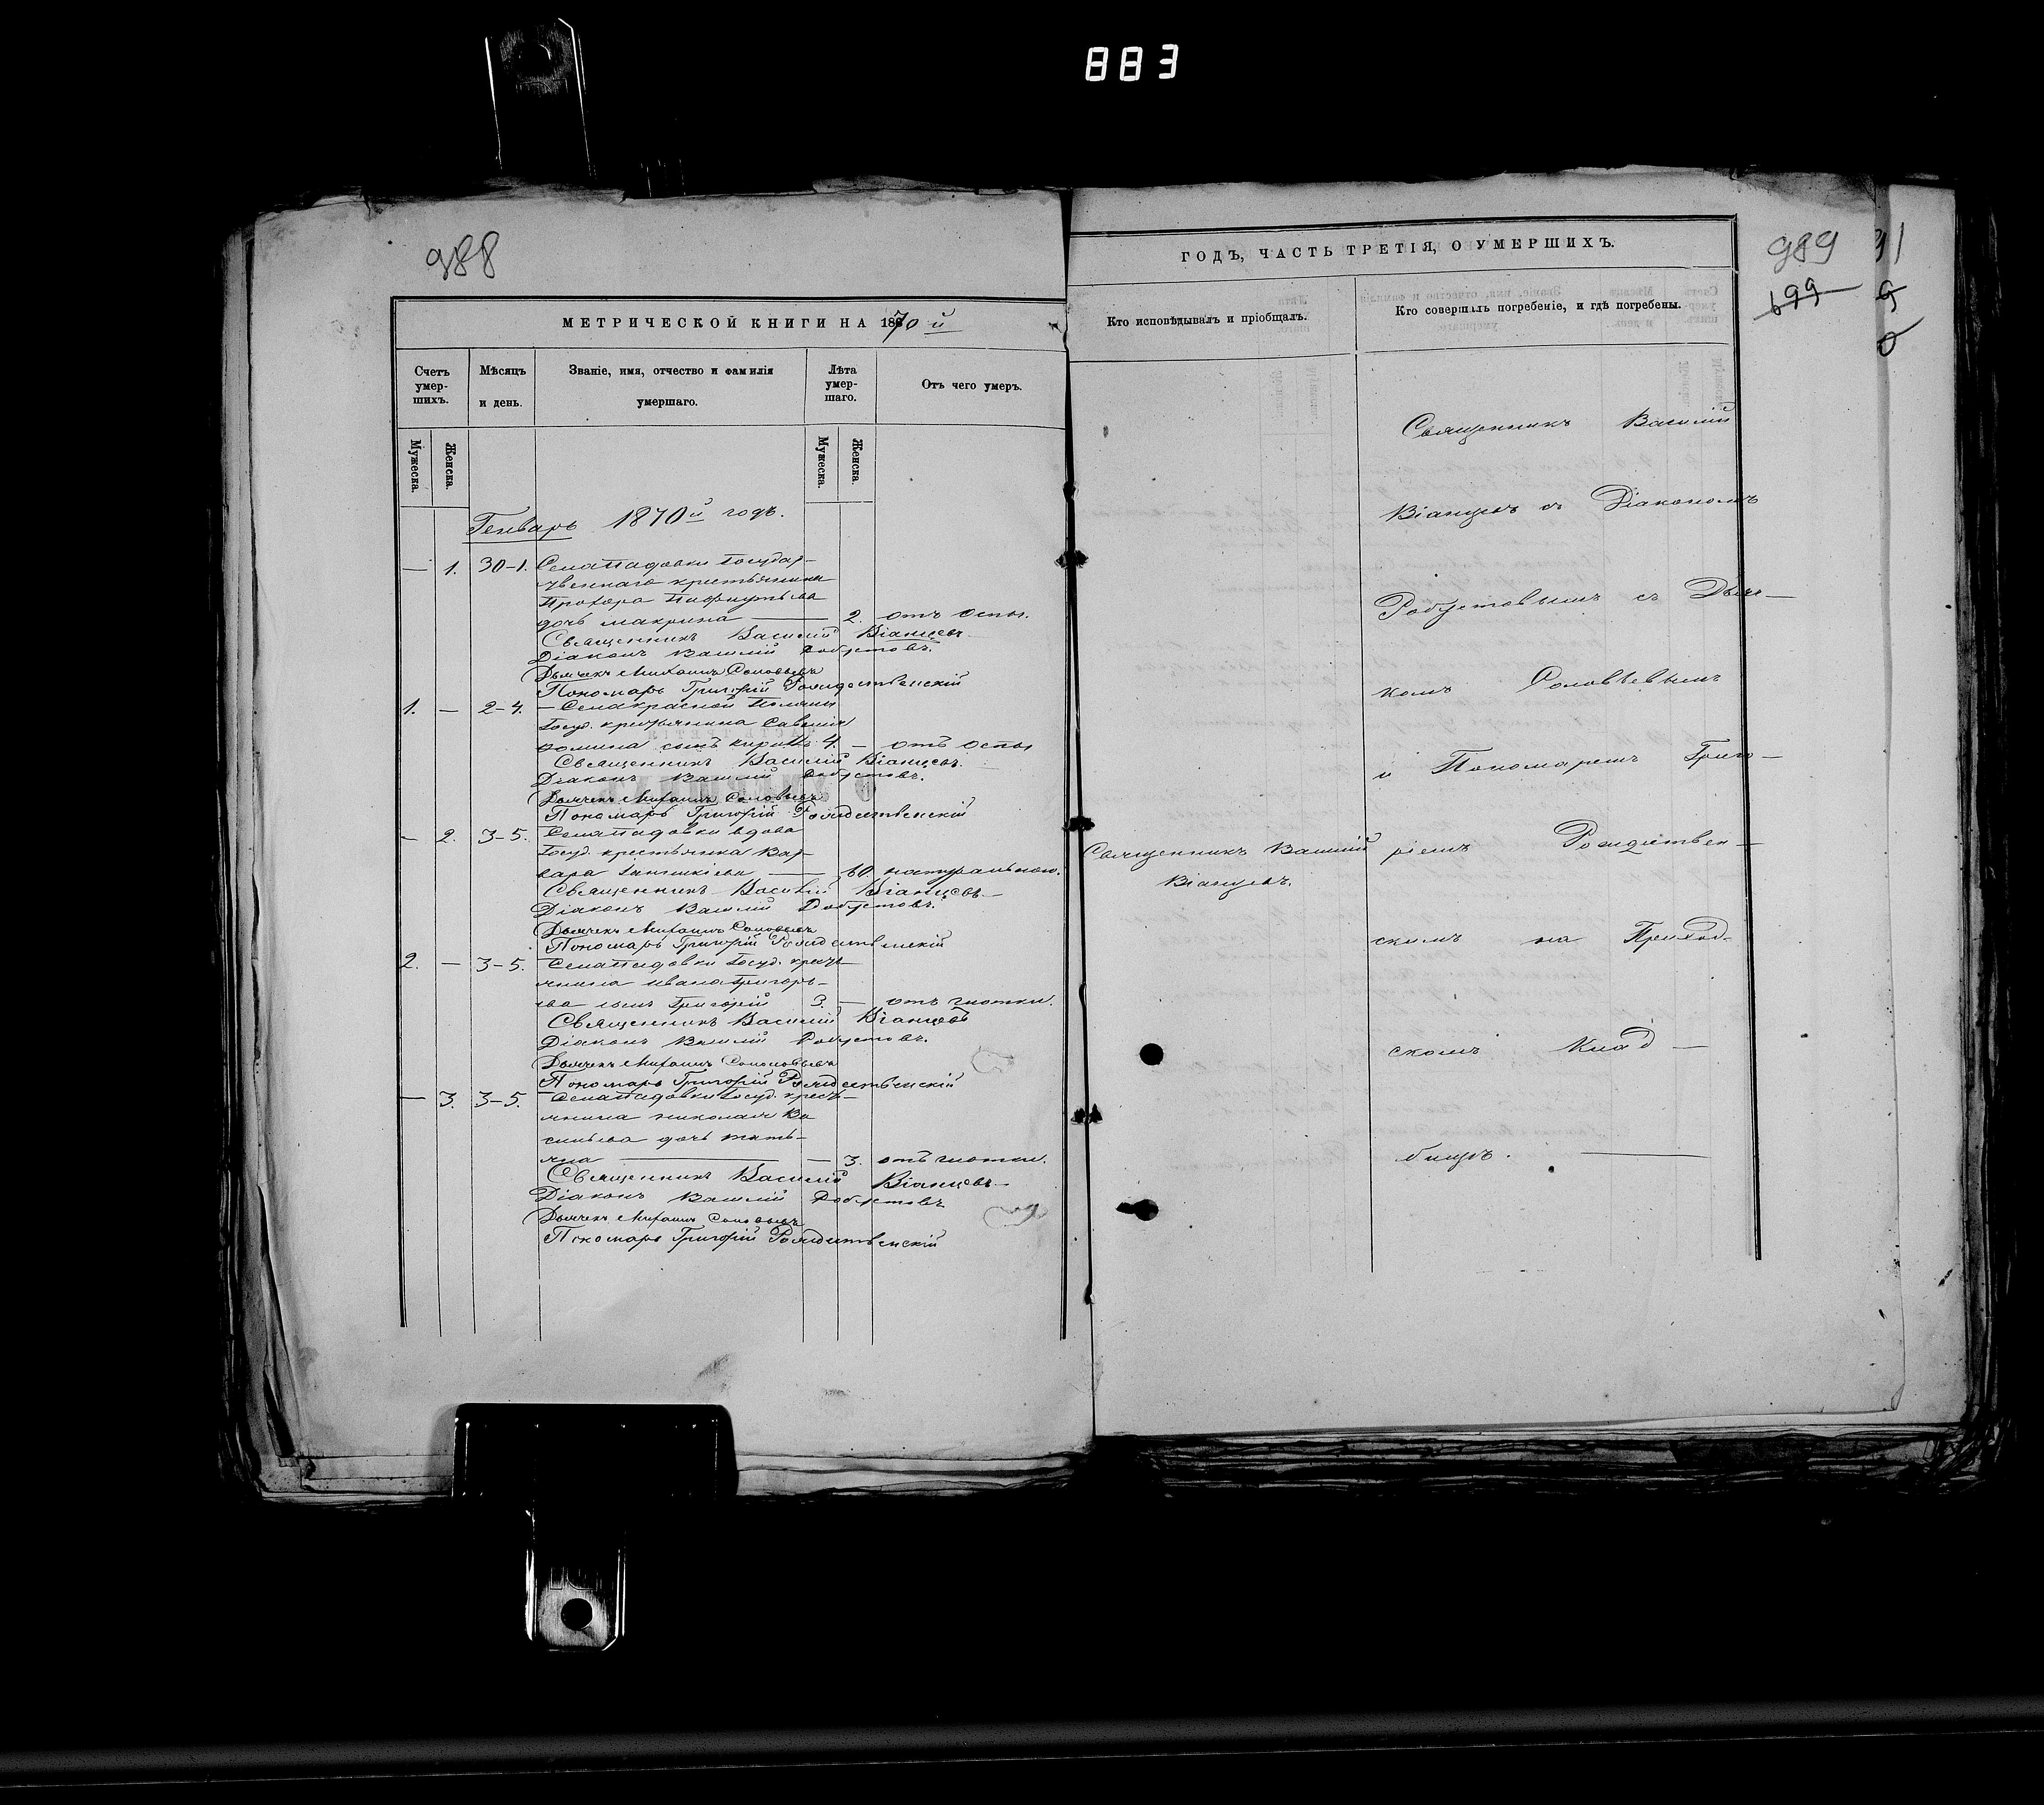 883
988
МЕТРИЧЕСКОЙ КНИГИ НА 1870й
Счетъ умер-шихъ.
Мѣсяцъ и день.
Званіе, имя, отчество и фамилія умершаго.
Лѣта умер-шаго.
Отъ чего умеръ.
Мужеска.
Женска.
Мужеска.
Женска.
Генварь 1870й годъ.
— 1. 30-1. Села Падовки Государ-
ственнаго крестьянина
Прохора Пафнутьева
дочь Макрина — 2. отъ оспы.
Священникъ Василій Віанцевъ
Діаконъ Василій Робустовъ.
Дьячекъ Михаилъ Соловьевъ
Пономарь Григорій Рождественскій
1. — 2-4. Села Красной Поляны
Госуд. крестьянина Савелія
Фомина сынъ Кириллъ 4. — отъ оспы
Священникъ Василій Віанцевъ.
Діаконъ Василій Робустовъ.
Дьячекъ Михаилъ Соловьевъ
Пономарь Григорій Рождественскій
— 2. 3-5. Села Падовки вдова
Госуд. крестьянка Вар-
вара — 60 натурально.
Священникъ Василій Віанцевъ
Діаконъ Василій Робустовъ.
Дьячекъ Михаилъ Соловьевъ
Пономарь Григорій Рождественскій
2. — 3-5. Села Падовки Госуд. кресть-
янина Ивана Григорь-
ева сынъ Григорій 3. — отъ глотки.
Священникъ Василій Віанцевъ
Діаконъ Василій Робустовъ.
Дьячекъ Михаилъ Соловьевъ
Пономарь Григорій Рождественскій
— 3. 3-5. Села Падовки Госуд. кресть-
янина Николая Ва
сильева дочь Тать-
яна — — 3. отъ глотки.
Священникъ Василій Віанцевъ
Діаконъ Василій Робустовъ
Дьячекъ Михаилъ Соловьевъ
Пономарь Григорій Рождественскій
989
699
ГОДЪ, ЧАСТЬ ТРЕТІЯ, О УМЕРШИХЪ.
Кто исповѣдывалъ и пріобщалъ.
Кто совершалъ погребеніе, и гдѣ погребены.
Священникъ Василій
Віанцевъ.
Священникъ Василій
Віанцевъ съ Діакономъ
Робустовымъ съ Дьяч—
комъ Соловьевымъ
и Пономаремъ Григо—
ріемъ Рождествен—
скимъ на Приход-
скомъ Клад—
бищѣ.